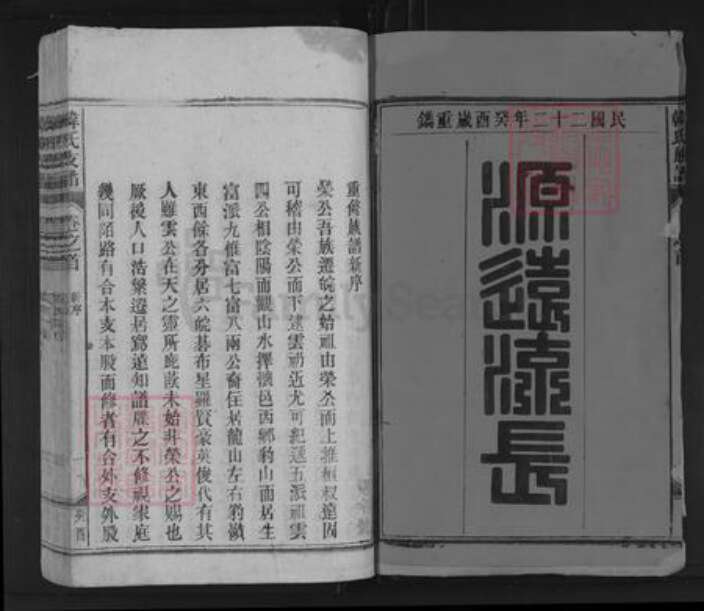 民國二十二年癸酉歲重鐫
源遠流長
重修族譜新序
榮公吾族遷皖之始祖由榮公而上雖桓叔遠因
可稽由榮公而下逮雲礽近尤可紀迄五派祖雲
四公相陰陽而觀山水擇懷邑西鄉豹山而居生
富派九惟富七富八兩公裔住居龍山左右豹嶺
東西餘各分居六皖碁布星羅賢豪英俊代有其
人雖雲公在天之靈所庇蔭未始非榮公之賜也
厥後人口浩繁遷居寫遠知譜牒之不修視家庭
幾同陌路有合本支本股而修者有合外支外股
韓氏支譜
卷之首
新序
癸酉